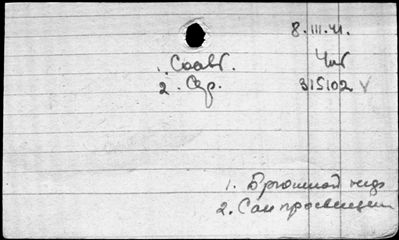 8.III.41.
1. Соавт. Чит
2. Ср. 315102 V
1. Брюшной тиф
2. Сан просвещен